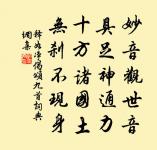 妙音觀世音
具足神通力
十方諸國土
無剎不現身
釋如净偈頌九首詞典
網集